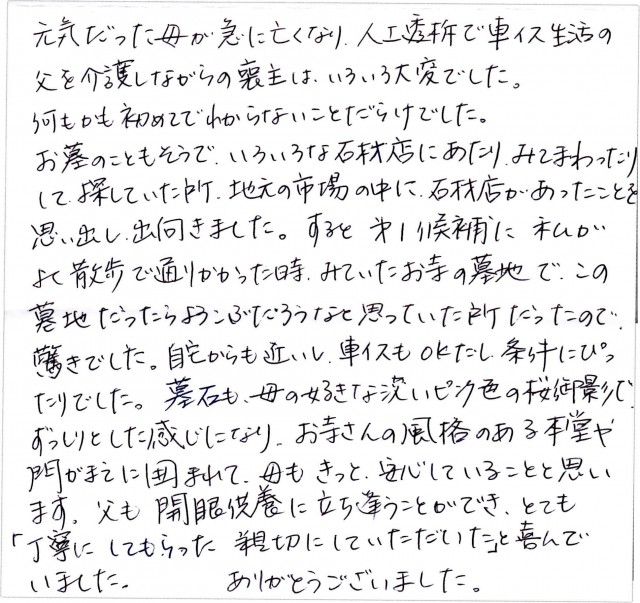 元気だった母が急に亡くなり、人工透析で車イス生活の
父を介護しながらの喪主は、いろいろ大変でした。
何もかも初めてでわからないことだらけでした。
お墓のこともそうで、いろいろな石材店にあたり、みてまわったり
して、探していた所、地元の市場の中に、石材店があったことを
思い出し、出向きました。すると 第1候補に 私が
よく散歩で通りかかった時、みていたお寺の墓地で、この
墓地だったらよろこぶだろうなと思っていた所だったので、
驚きでした。自宅からも近いし、車イスもOKだし、条件にぴっ
たりでした。墓石も、母の好きな淡いピンク色の桜御影で、
ずっしりとした感じになり、お寺さんの風格のある本堂や
門がまえに囲まれて、母も きっと、安心していることと思い
ます。父も 開眼供養に立ち逢うことができ、とても
「丁寧に してもらった 親切にしていただいた」と喜んで
いました。 ありがとうございました。